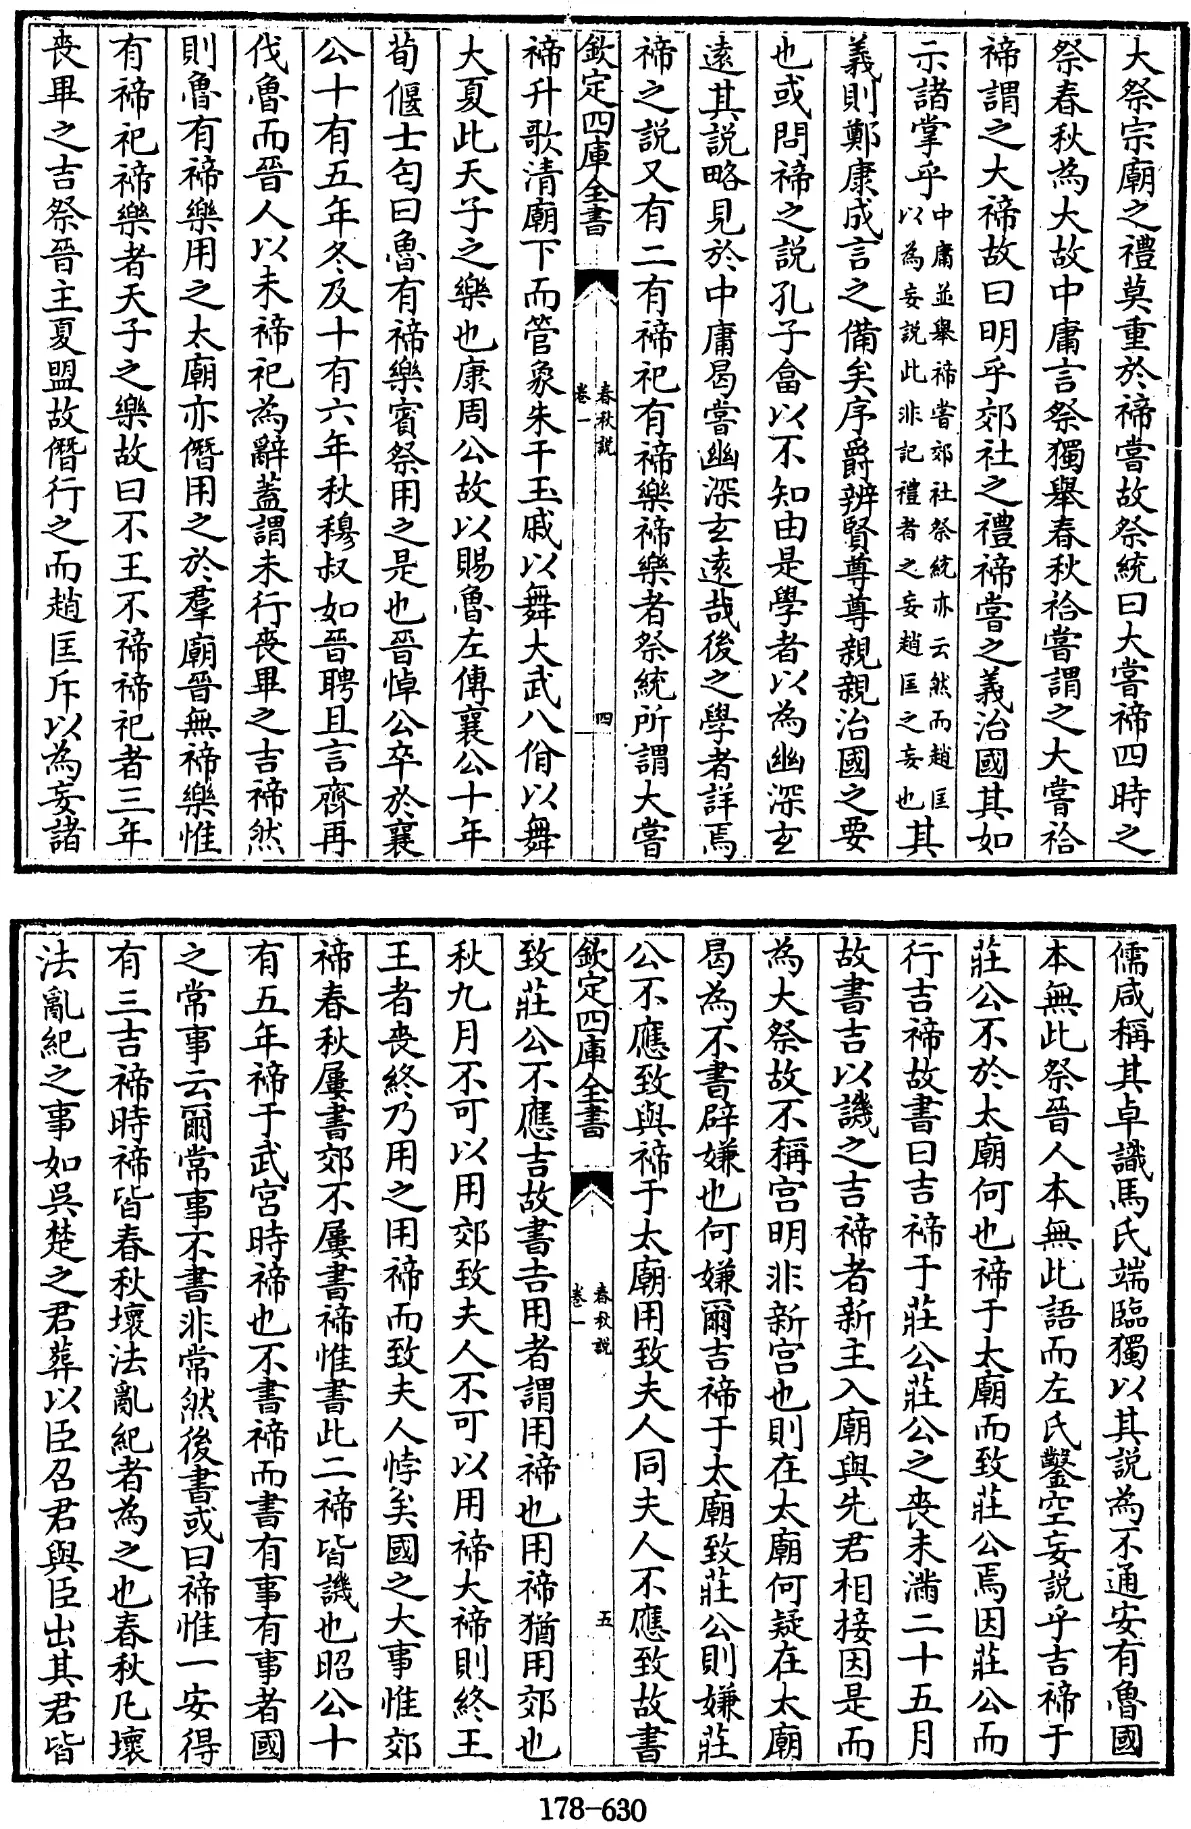 大祭宗廟之禮莫重於禘嘗故祭統曰大嘗禘四時之
祭春秋為大故中庸言祭獨舉春秋祫嘗謂之大嘗祫
禘謂之大禘故曰明乎郊社之禮禘嘗之義治國其如
示諸掌乎中庸並舉禘嘗郊社祭統亦云然而趙匡以為妄説此非記禮者之妄趙匡之妄也其
義則鄭康成言之備矣序爵辨賢尊尊親親治國之要
也或問禘之説孔子畣以不知由是學者以為幽深玄
遠其説略見於中庸曷嘗幽深玄遠哉後之學者詳焉
禘之説又有二有禘祀有禘樂禘樂者祭統所謂大嘗
欽定四庫全書
春秋説
卷一
四
禘升歌清廟下而管象朱干玉戚以舞大武八佾以舞
大夏此天子之樂也康周公故以賜魯左傳襄公十年
荀偃士匄曰魯有禘樂賓祭用之是也晉悼公卒於襄
公十有五年冬及十有六年秋穆叔如晉聘且言齊再
伐魯而晉人以未禘祀為辭蓋謂未行喪畢之吉禘然
則魯有禘樂用之太廟亦僭用之於羣廟晉無禘樂惟
有禘祀禘樂者天子之樂故曰不王不禘禘祀者三年
喪畢之吉祭晉主夏盟故僭行之而趙匡斥以為妄諸
儒咸稱其卓識馬氏端臨獨以其説為不通安有魯國
本無此祭晉人本無此語而左氏鑿空妄説乎吉禘于
莊公不於太廟何也禘于太廟而致莊公焉因莊公而
行吉禘故書曰吉禘于莊公莊公之喪未滿二十五月
故書吉以譏之吉禘者新主入廟與先君相接因是而
為大祭故不稱宫明非新宫也則在太廟何疑在太廟
曷為不書辟嫌也何嫌爾吉禘于太廟致莊公則嫌莊
公不應致與禘于太廟用致夫人同夫人不應致故書
欽定四庫全書
春秋説
卷一
五
致莊公不應吉故書吉用者謂用禘也用禘猶用郊也
秋九月不可以用郊致夫人不可以用禘大禘則終王
王者喪終乃用之用禘而致夫人悖矣國之大事惟郊
禘春秋屢書郊不屢書禘惟書此二禘皆譏也昭公十
有五年禘于武宫時禘也不書禘而書有事有事者國
之常事云爾常事不書非常然後書或曰禘惟一安得
有三吉禘時禘皆春秋壞法亂紀者為之也春秋凡壞
法亂紀之事如吳楚之君葬以臣召君與臣出其君皆
178-630